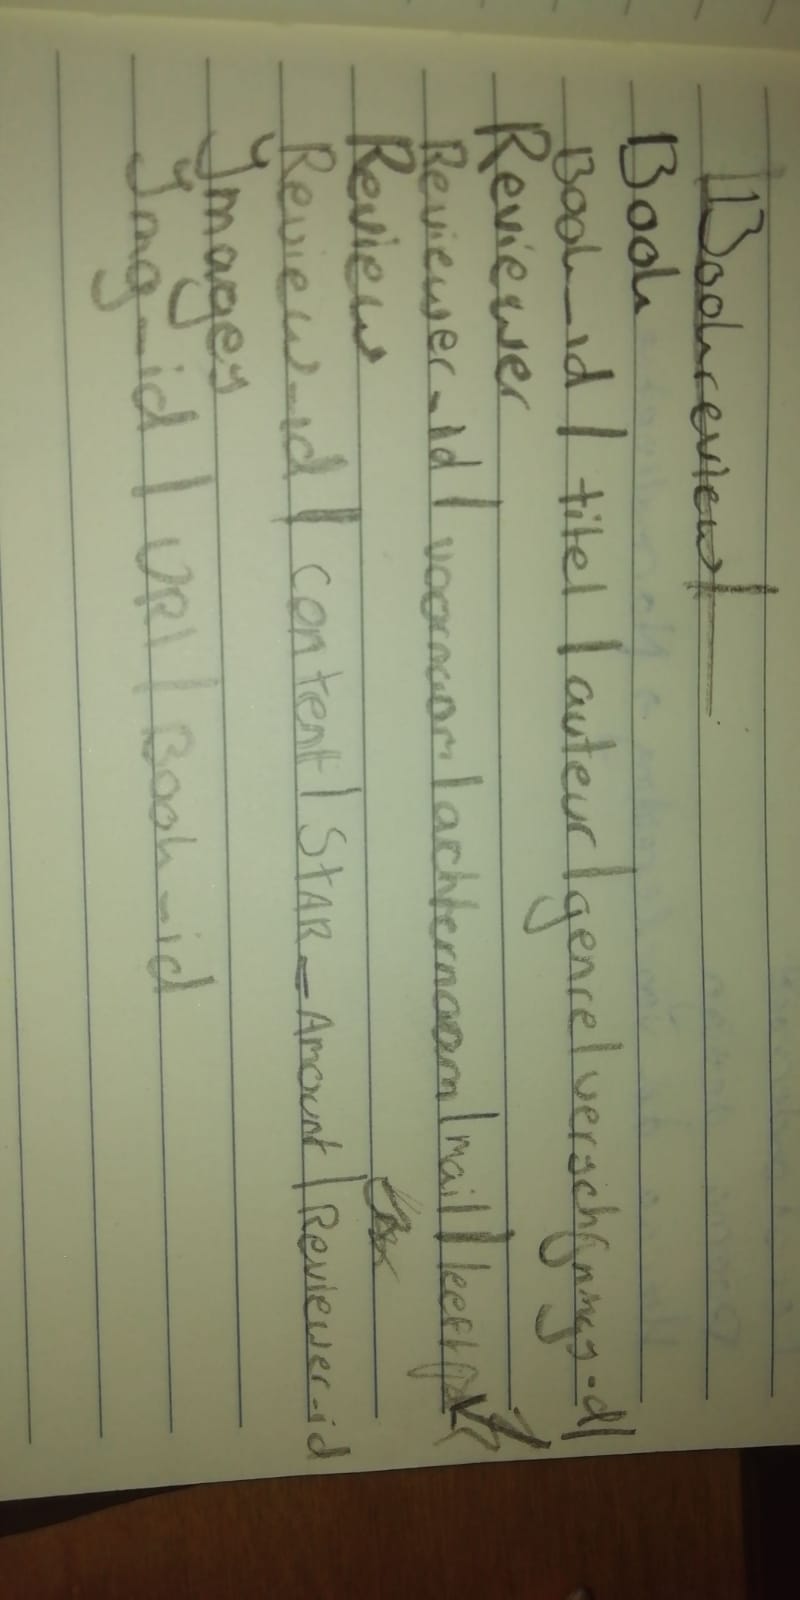 Bookreview
Book
Book_id | titel | auteur | genre | verschijnings-d
Reviewer
Reviewer_id | voornaam | achternaam | mail | leeft
Review
Review_id | content | STAR_Amount | Reviewer_id
Images
Img_id | URl | Book_id